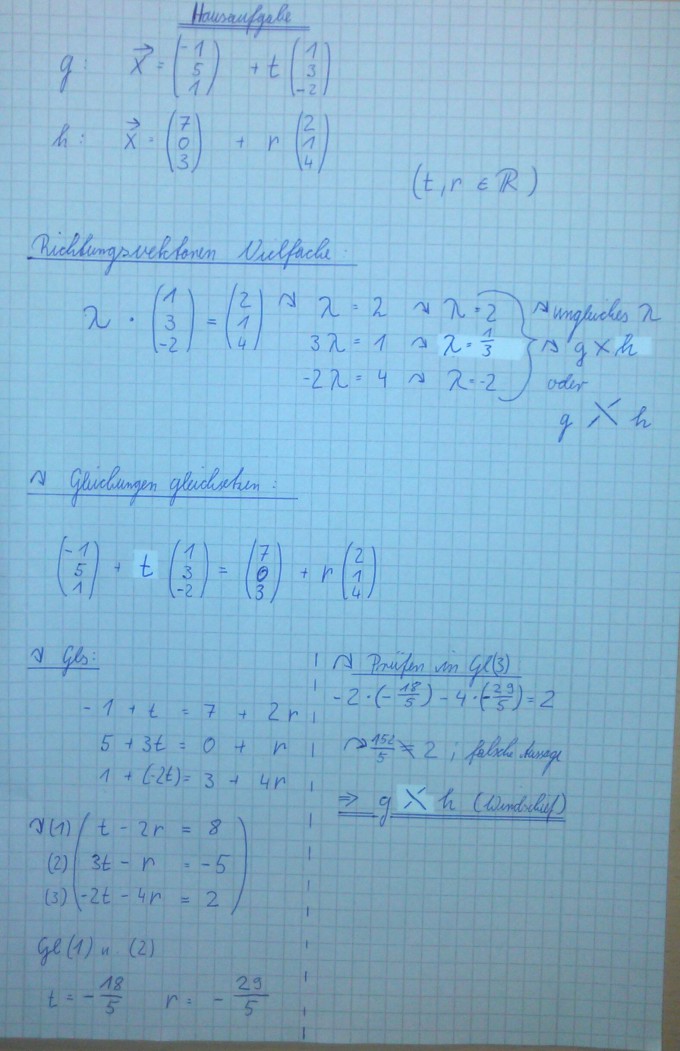 Hausaufgabe
g: x⃗ = (-1 5 1) + t (1 3 -2)
h: x⃗ = (7 0 3) + r (2 1 4)
(t, r ∈ ℝ)
Richtungsvektoren Vielfache:
λ · (1 3 -2) = (2 1 4) ↝ λ = 2 ↝ λ = 2
3λ = 1 ↝ λ = 1/3
-2λ = 4 ↝ λ = -2
↝ ungleiches λ
↝ g × h
oder
g ⤫ h
↝ Gleichungen gleichsetzen:
(-1 5 1) + t (1 3 -2) = (7 0 3) + r (2 1 4)
↝ Gls:
-1 + t = 7 + 2r
5 + 3t = 0 + r
1 + (-2t) = 3 + 4r
↝ (1) t - 2r = 8
(2) 3t - r = -5
(3) -2t - 4r = 2
Gl (1) u. (2)
t = - 18/5 r = - 29/5
↝ Prüfen in Gl(3)
-2·(-18/5) - 4·(-29/5) = 2
↝ 152/5 ≠ 2 ; falsche Aussage
⇒ g ⤫ h (Windschief)